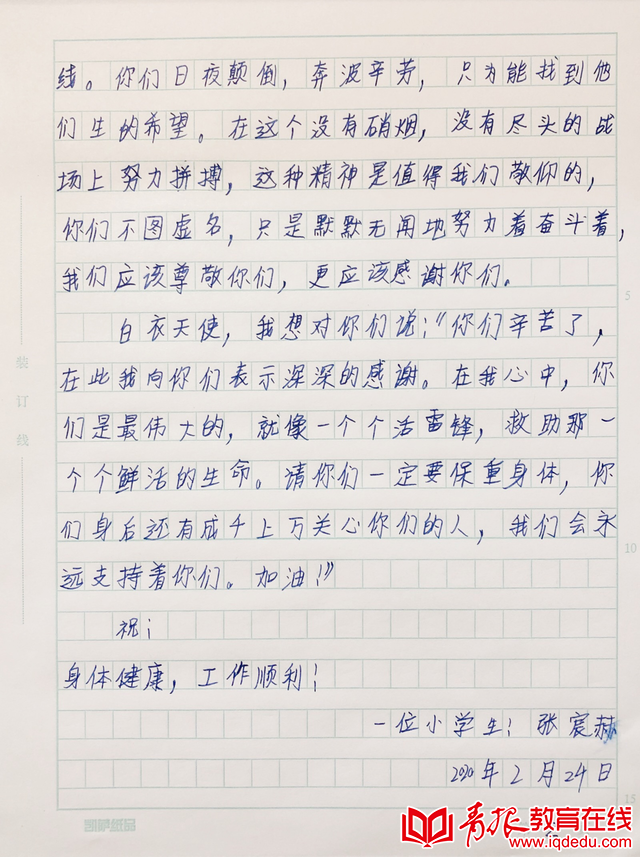 线。你们日夜颠倒，奔波辛劳，只为能找到他
们生的希望。在这个没有硝烟，没有尽头的战
场上努力拼搏，这种精神是值得我们敬仰的，
你们不图虚名，只是默默无闻地努力着奋斗着，
我们应该尊敬你们，更应该感谢你们。
白衣天使，我想对你们说：“你们辛苦了，
在此我向你们表示深深的感谢。在我心中，你
们是最伟大的，就像一个个活雷锋，救助那一
个个鲜活的生命。请你们一定要保重身体，你
们身后还有成千上万关心你们的人，我们会永
远支持着你们。加油！”
祝：
身体健康，工作顺利！
一位小学生：张宸赫
2020年2月24日
装订线
5
10
15
凯萨纸品
青报教育在线
www.iqdedu.com